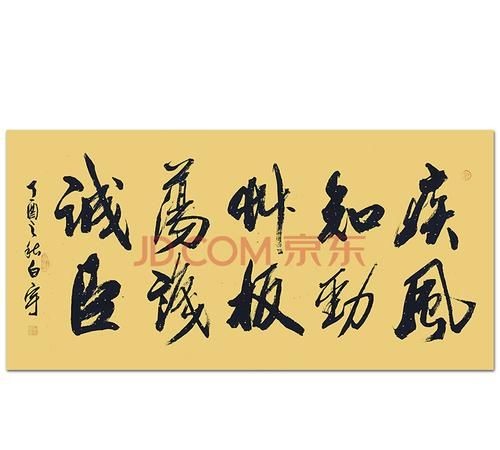 疾風
知勁
艸板
蕩識
誠臣
丁酉之秋白宇
JD.COM 京东